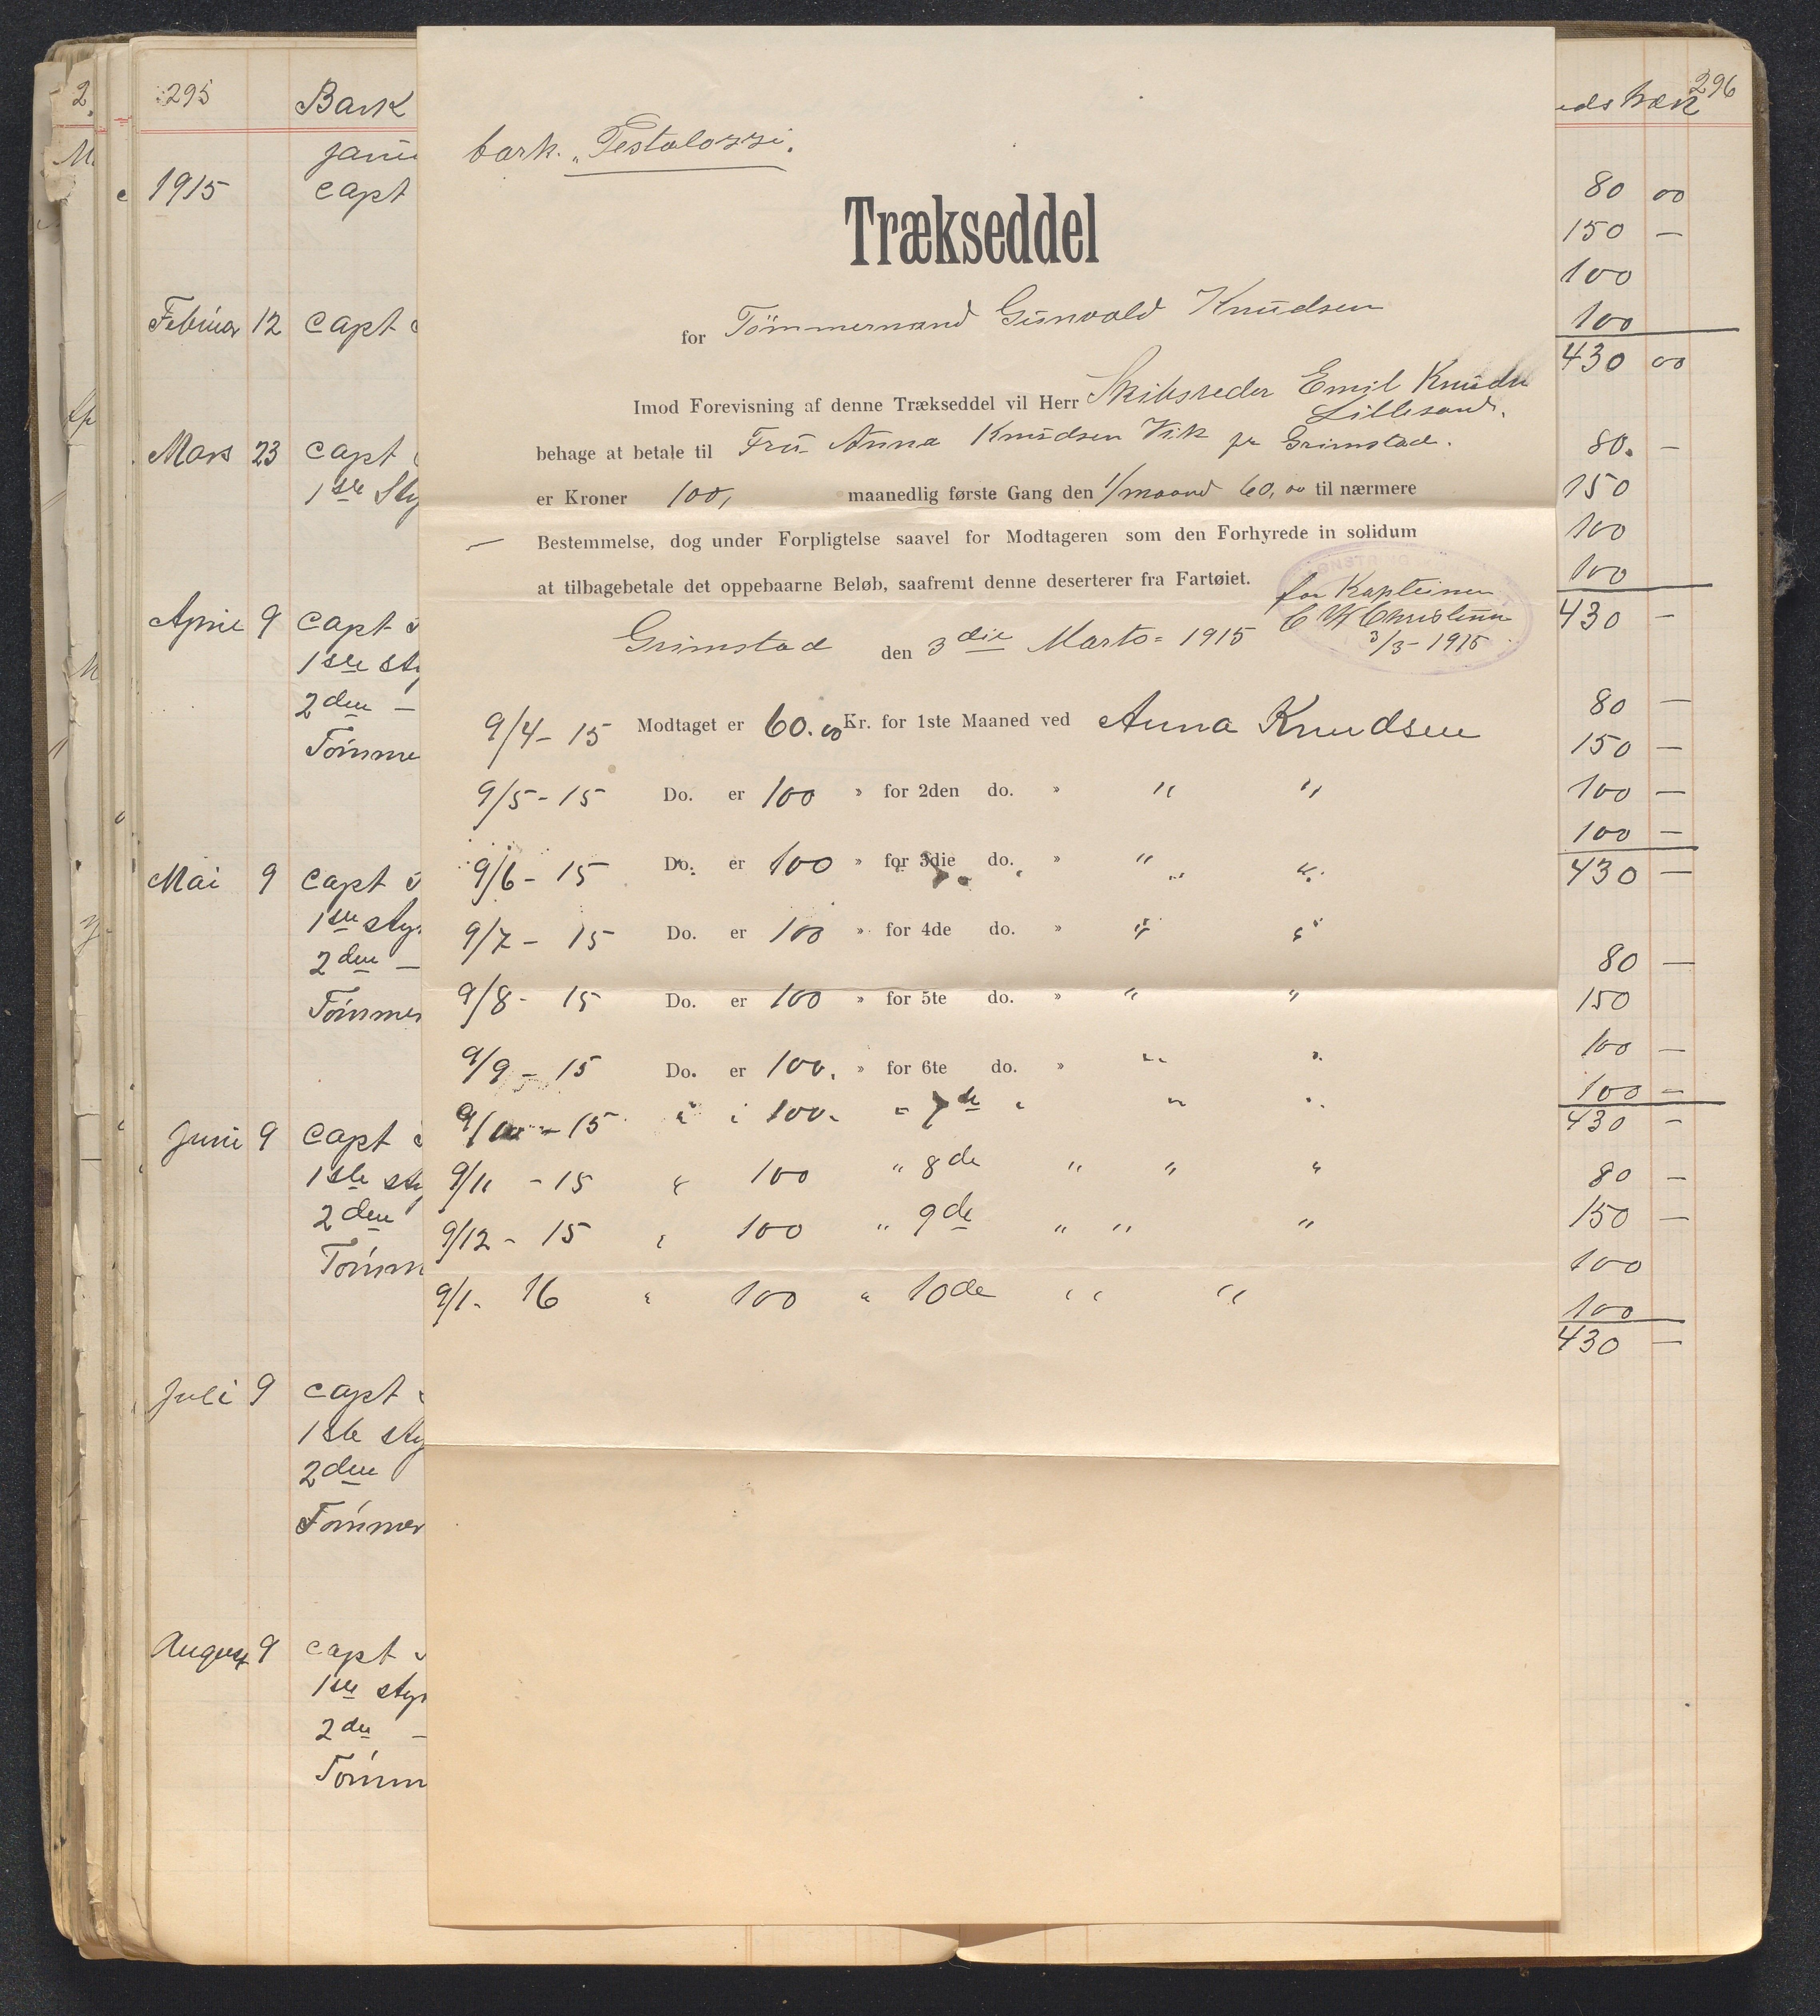 295
Bark
1915
capt
Februar 12 capt
Mars 23 capt
1ste Sty
April 9 capt
1ste sty
2den —
Tömme
Mai 9 capt
1ste sty
2den —
Tömmer
Juni 9 capt
1ste sty
2den
Tömm
Juli 9 capt
1ste sty
2den
Tömmer
August 9 capt
1ste sty
2den —
Tömm
bark. „Pestalozzi.
Trækseddel
for Tömmermand Gunvald Knudsen
Imod Forevisning af denne Trækseddel vil Herr Skibsreder Emil Knudsen
Lillesand.
behage at betale til Fru Anna Knudsen Vik pr Grimstad.
er Kroner 100, maanedlig første Gang den 1/maaned 60,00 til nærmere
Bestemmelse, dog under Forpligtelse saavel for Modtageren som den Forhyrede in solidum
at tilbagebetale det oppebaarne Beløb, saafremt denne deserterer fra Fartøiet.
for Kapteinen
Grimstad den 3die Marts 1915
3/3-1915
9/4-15 Modtaget er 60.00 Kr. for 1ste Maaned ved Anna Knudsen
9/5-15 Do. er 100 » for 2den do. » " "
9/6-15 Do. er 100 » for 3die do. » " "
9/7-15 Do. er 100 » for 4de do. » " "
9/8-15 Do. er 100 » for 5te do. » " "
9/9-15 Do. er 100. » for 6te do. » " "
9/10-15 " " 100. " 7de " " "
9/11-15 " 100 " 8de " " "
9/12-15 " 100 " 9de " " "
9/1-16 " 100 " 10de " "
296
80 00
150 —
100
100
430 00
80. —
150
100
100
430 —
80 —
150 —
100 —
100 —
430 —
80 —
150
100 —
100 —
430 —
80 —
150 —
100
100 —
430 —